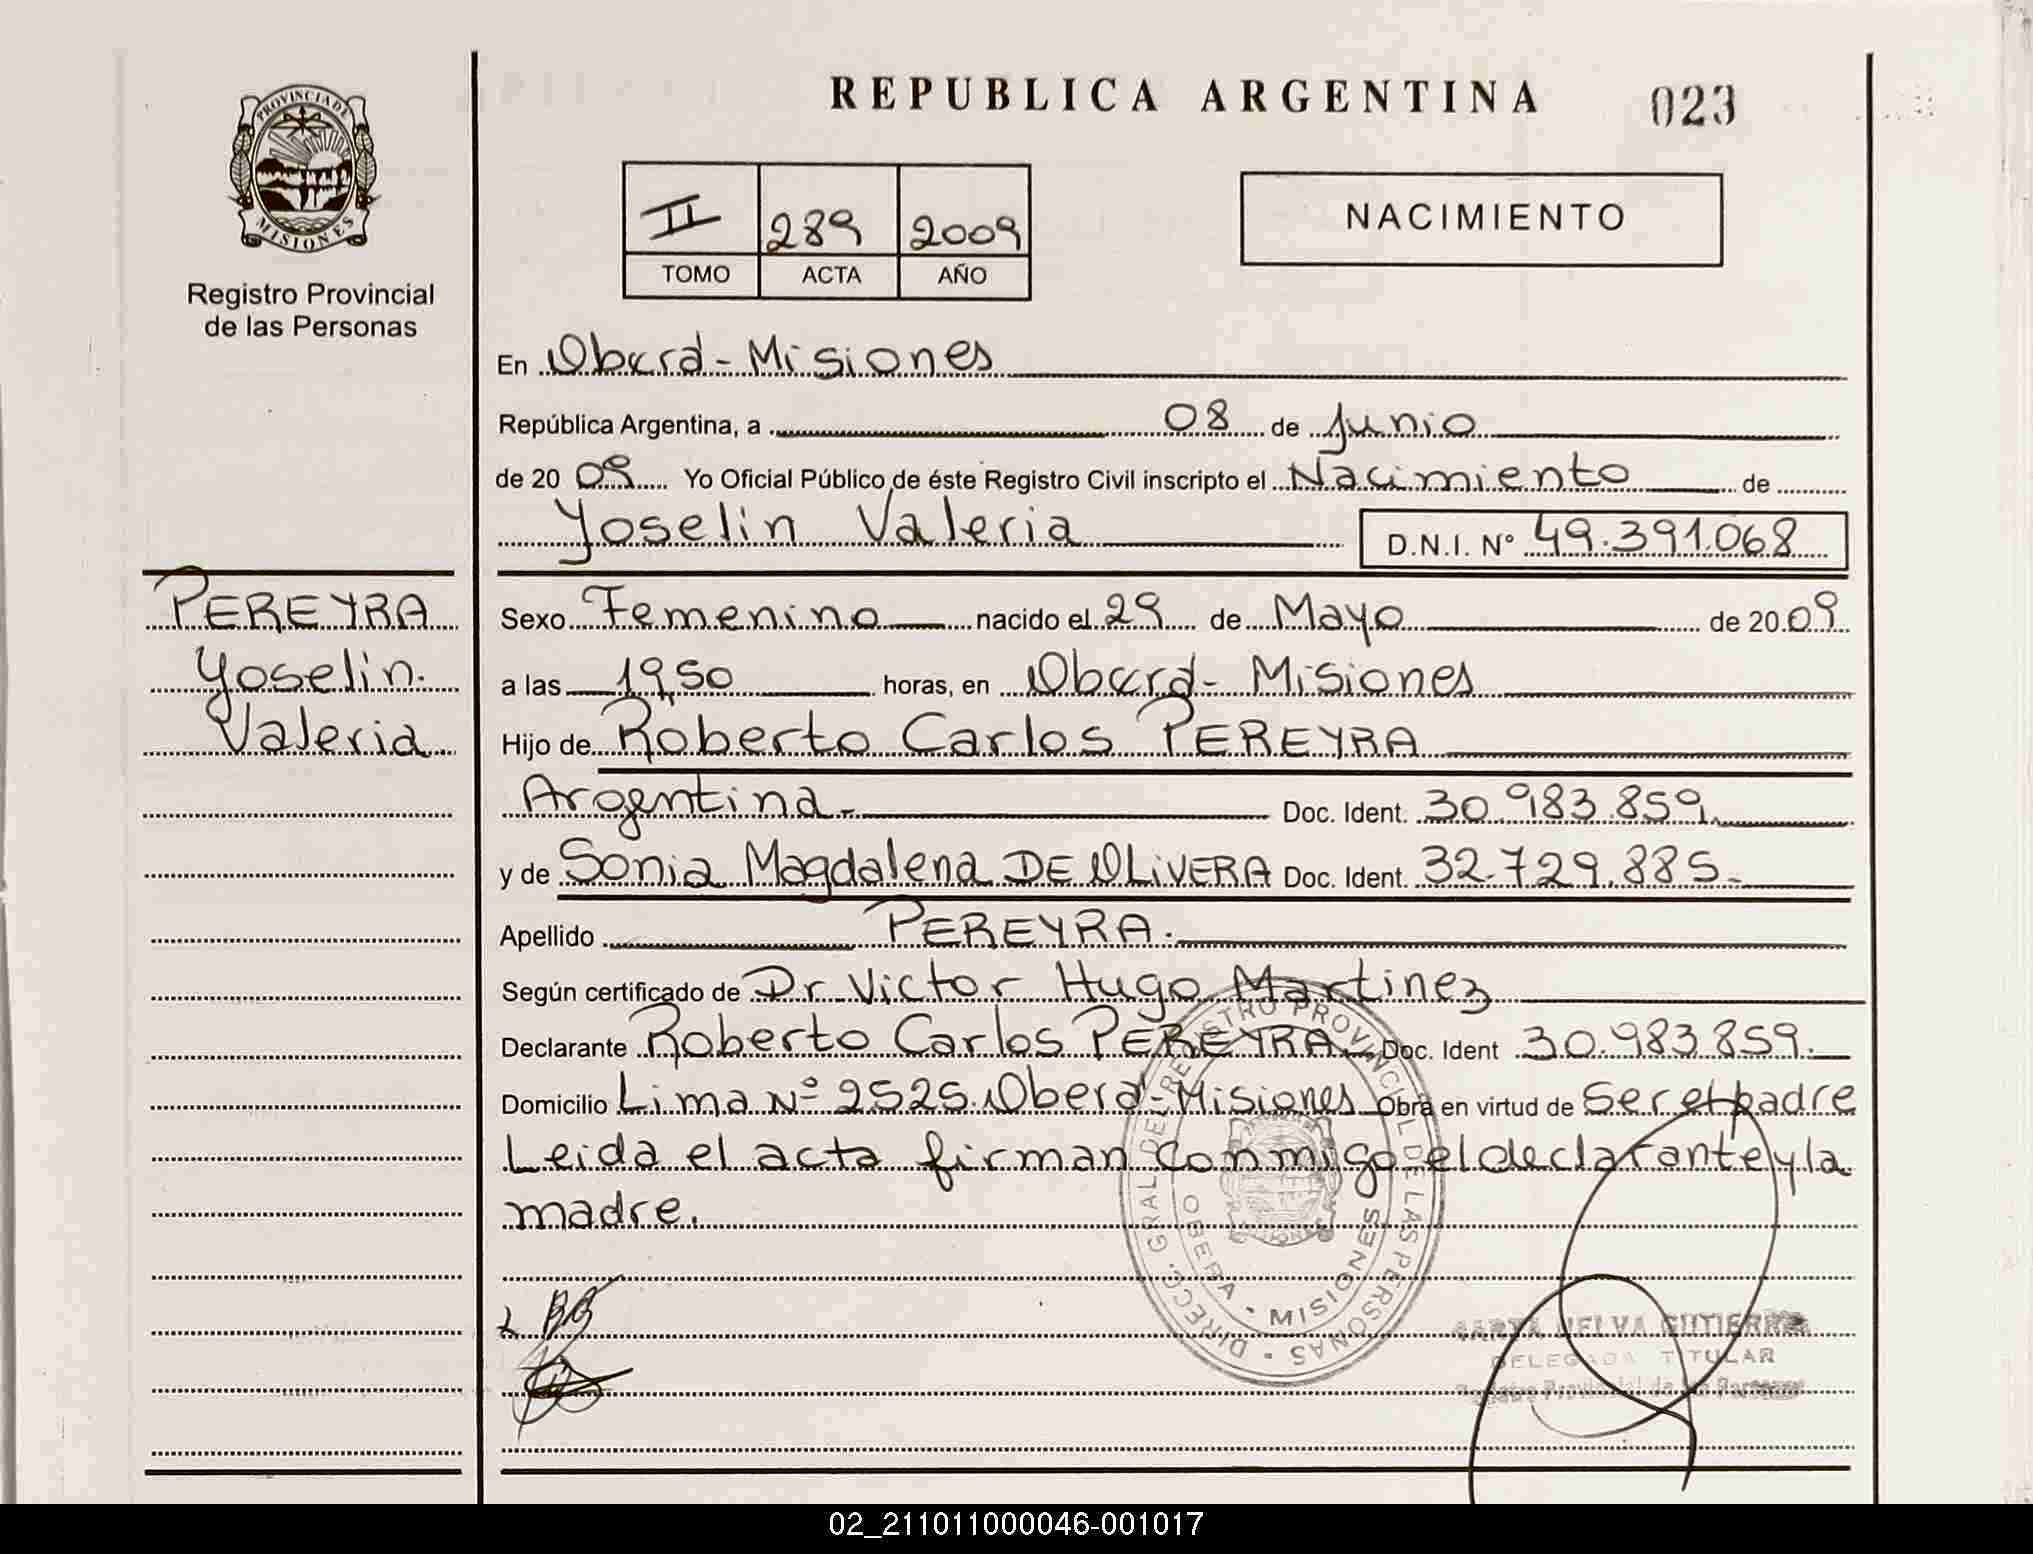 REPUBLICA ARGENTINA
023
PROVINCIA DE
MISIONES
Registro Provincial
de las Personas
II 289 2009
TOMO ACTA AÑO
NACIMIENTO
En Oberá - Misiones
República Argentina, a 08 de Junio
de 20 09 Yo Oficial Público de éste Registro Civil inscripto el Nacimiento de
Yoselin Valeria D.N.I. Nº 49.391.068
PEREYRA
Yoselin
Valeria
Sexo Femenino nacido el 29 de Mayo de 20 09
a las 19,50 horas, en Oberá - Misiones
Hijo de Roberto Carlos PEREYRA
Argentina.- Doc. Ident. 30.983.859
y de Sonia Magdalena DE OLIVERA Doc. Ident. 32.729.885.-
Apellido PEREYRA.
Según certificado de Dr Victor Hugo Martinez
Declarante Roberto Carlos PEREYRA Doc. Ident 30.983.859.
Domicilio Lima Nº 2525. Oberá - Misiones Obra en virtud de Ser el padre
Leida el acta firman conmigo el declarante y la
madre.
DIRECC. GRAL. DE REGISTRO PROVINCIAL DE LAS PERSONAS
OBERA - MISIONES
GUTIERREZ
DELEGADA TITULAR
Registro Provincial de las Personas
02_211011000046-001017